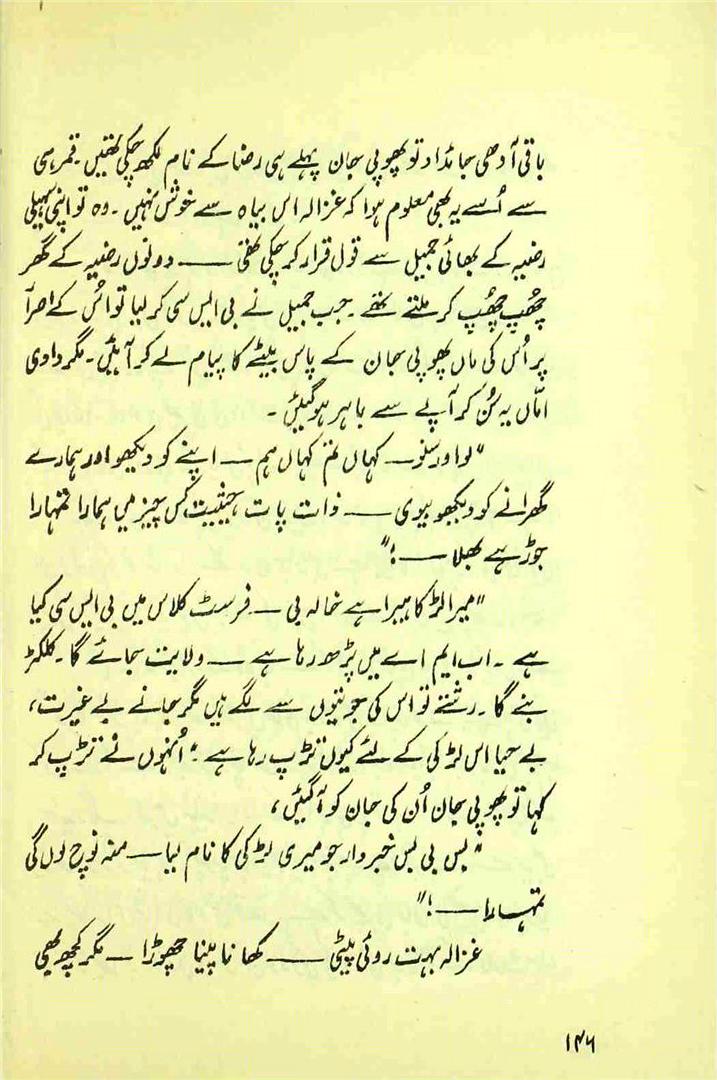 باقی آدھی جائداد تو پھوپی جان پہلے ہی رضا کے نام لکھ چکی تھیں۔ قمر ہی
سے اُسے یہ بھی معلوم ہوا کہ غزالہ اس بیاہ سے خوش نہیں۔ وہ تو اپنی سہیلی
رضیہ کے بھائی جمیل سے قول قرار کر چکی تھی —— دونوں رضیہ کے گھر
چھُپ چھُپ کر ملتے تھے۔ جب جمیل نے بی ایس سی کر لیا تو اُس کے اصرار
پر اُس کی ماں پھوپی جان کے پاس بیٹے کا پیام لے کر آئیں۔ مگر دادی
امّاں یہ سُن کر آپے سے باہر ہو گئیں۔
"لو اور سنو — کہاں تم کہاں ہم — اپنے کو دیکھو اور ہمارے
گھرانے کو دیکھو بیوی —— ذات پات حیثیت کس چیز میں ہمارا تمہارا
جوڑ ہے بھلا ——!"
"میرا لڑکا ہیرا ہے خالہ بی — فرسٹ کلاس میں بی ایس سی کیا
ہے۔ اب ایم اے میں پڑھ رہا ہے —— ولایت جائے گا۔ کلکٹر
بنے گا۔ رشتے تو اس کی جوتیوں سے لگے ہیں مگر جانے بے غیرت،
بے حیا اس لڑکی کے لئے کیوں تڑپ رہا ہے۔" اُنہوں نے تڑپ کر
کہا تو پھوپی جان اُن کی جان کو آ گئیں،
"بس بی بس خبردار جو میری لڑکی کا نام لیا — منہ نوچ لوں گی
تمہارا ——!"
غزالہ بہت روئی پیٹی —— کھانا پینا چھوڑا — مگر کچھ بھی
۱۴۶